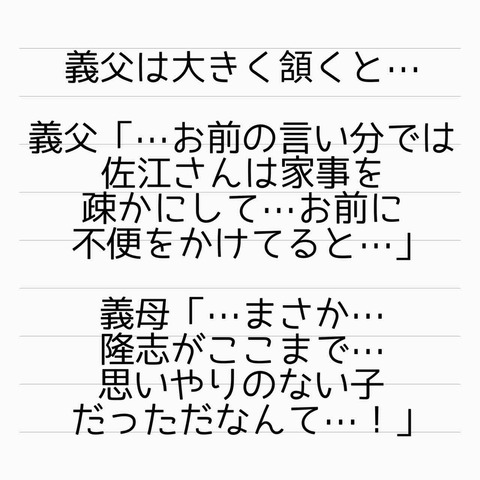 義父は大きく頷くと…
義父「…お前の言い分では
佐江さんは家事を
疎かにして…お前に
不便をかけてると…」
義母「…まさか…
隆志がここまで…
思いやりのない子
だっただなんて…！」